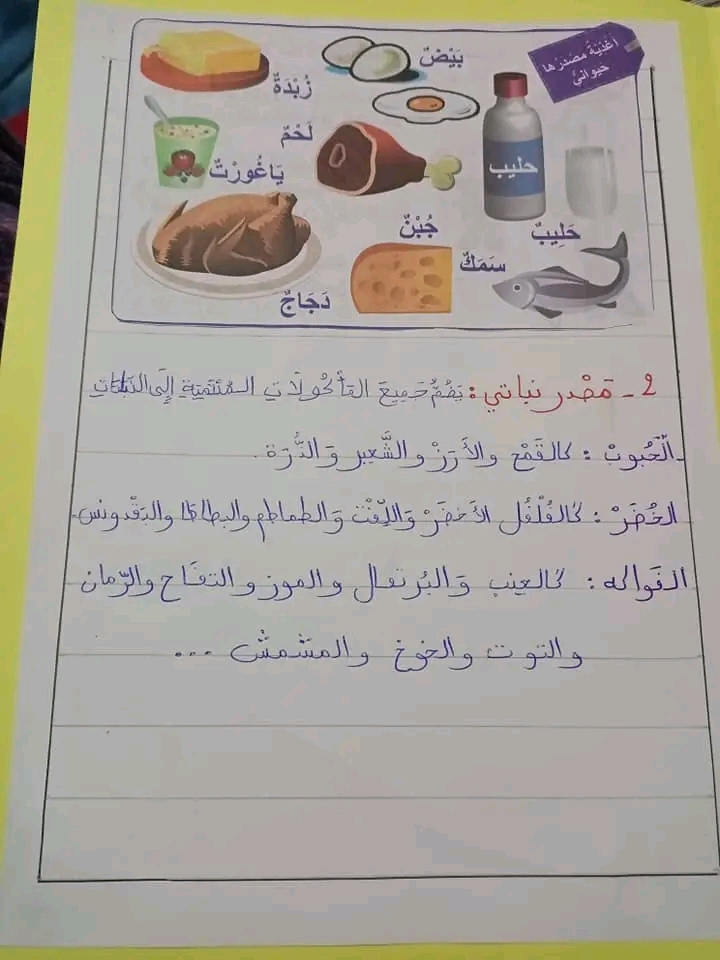 أَغْذِيَةٌ مَصْدَرُهَا
حَيَوَانِيٌّ
بَيْضٌ
زُبْدَةٌ
لَحْمٌ
يَاغُورْتٌ
حليب
حَلِيبٌ
جُبْنٌ
سَمَكٌ
دَجَاجٌ
2 - مَصْدر نباتي: يَضُمُّ جَمِيعَ المَأْكُولَاتِ المُنْتَمِيَةِ إِلَى النَّبَاتَاتِ
- الْحُبوبْ: كالقَمْح والأَرُزْ والشَّعير وَالذُّرَة.
الخُضَرْ: كَالفُلْفُل الأَخضَرْ وَاللِّفْتْ وَالطماطم والبطاطا والبَقْدونس.
الفَواكه: كَالعِنب وَالبُرتقال والموز والتفَاح والرّمان
والتوت والخوخ والمشمشْ ...